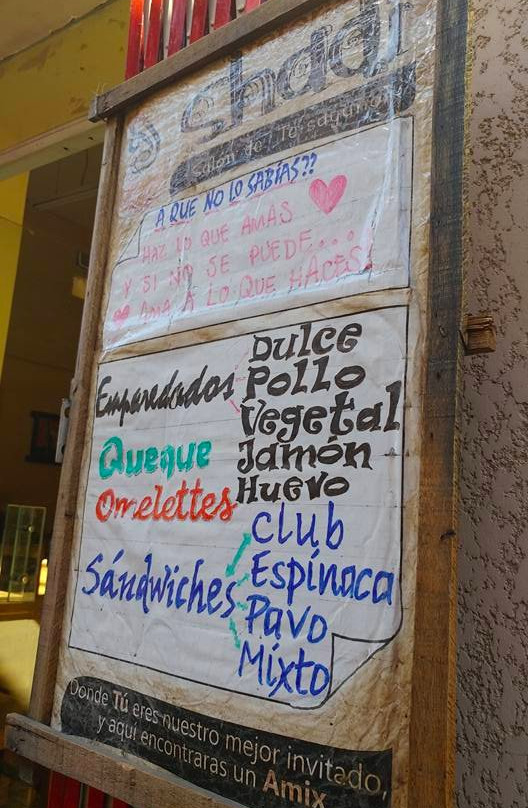 shadi
Salón de Té sayumo
A QUE NO LO SABÍAS??
HAZ LO QUE AMAS
Y SI NO SE PUEDE....
AMA A LO QUE HACES!
Emparedados
Dulce
Pollo
Vegetal
Jamón
Huevo
Queque
Omelettes
Sándwiches
Club
Espínaca
Pavo
Mixto
Donde Tú eres nuestro mejor invitado,
y aquí encontraras un Amix